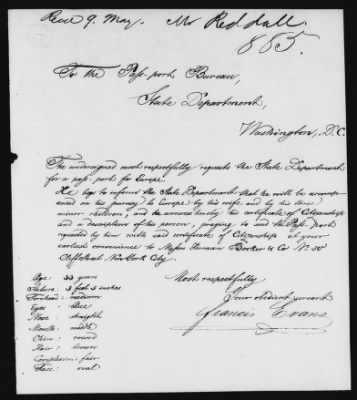 Rec'd 9. May. Mr Reddall.
885.
To the Pass-port Bureau,
State Department,
Washington, D.C.
The undersigned most respectfully requests the State Department
for a pass-port for Europe.
He begs to inform the State Department that he will be accompa-
nied on his journey to Europe by his wife and by his
minor children, and he annexes hereby his certificate of Citizenship
and a description of his person, praying to send the Pass-port
requested by him with said certificate of Citizenship at your
earliest convenience to Messrs Herman Becker & Co No 50
New York City.
Most respectfully
Your obedient servant
Francis Evans
Age : 33 years
Stature : 5 feet 5 inches
Forehead : medium
Eyes : blue
Nose : straight
Mouth : middle
Chin : round
Hair : brown
Complexion : fair
Face : oval